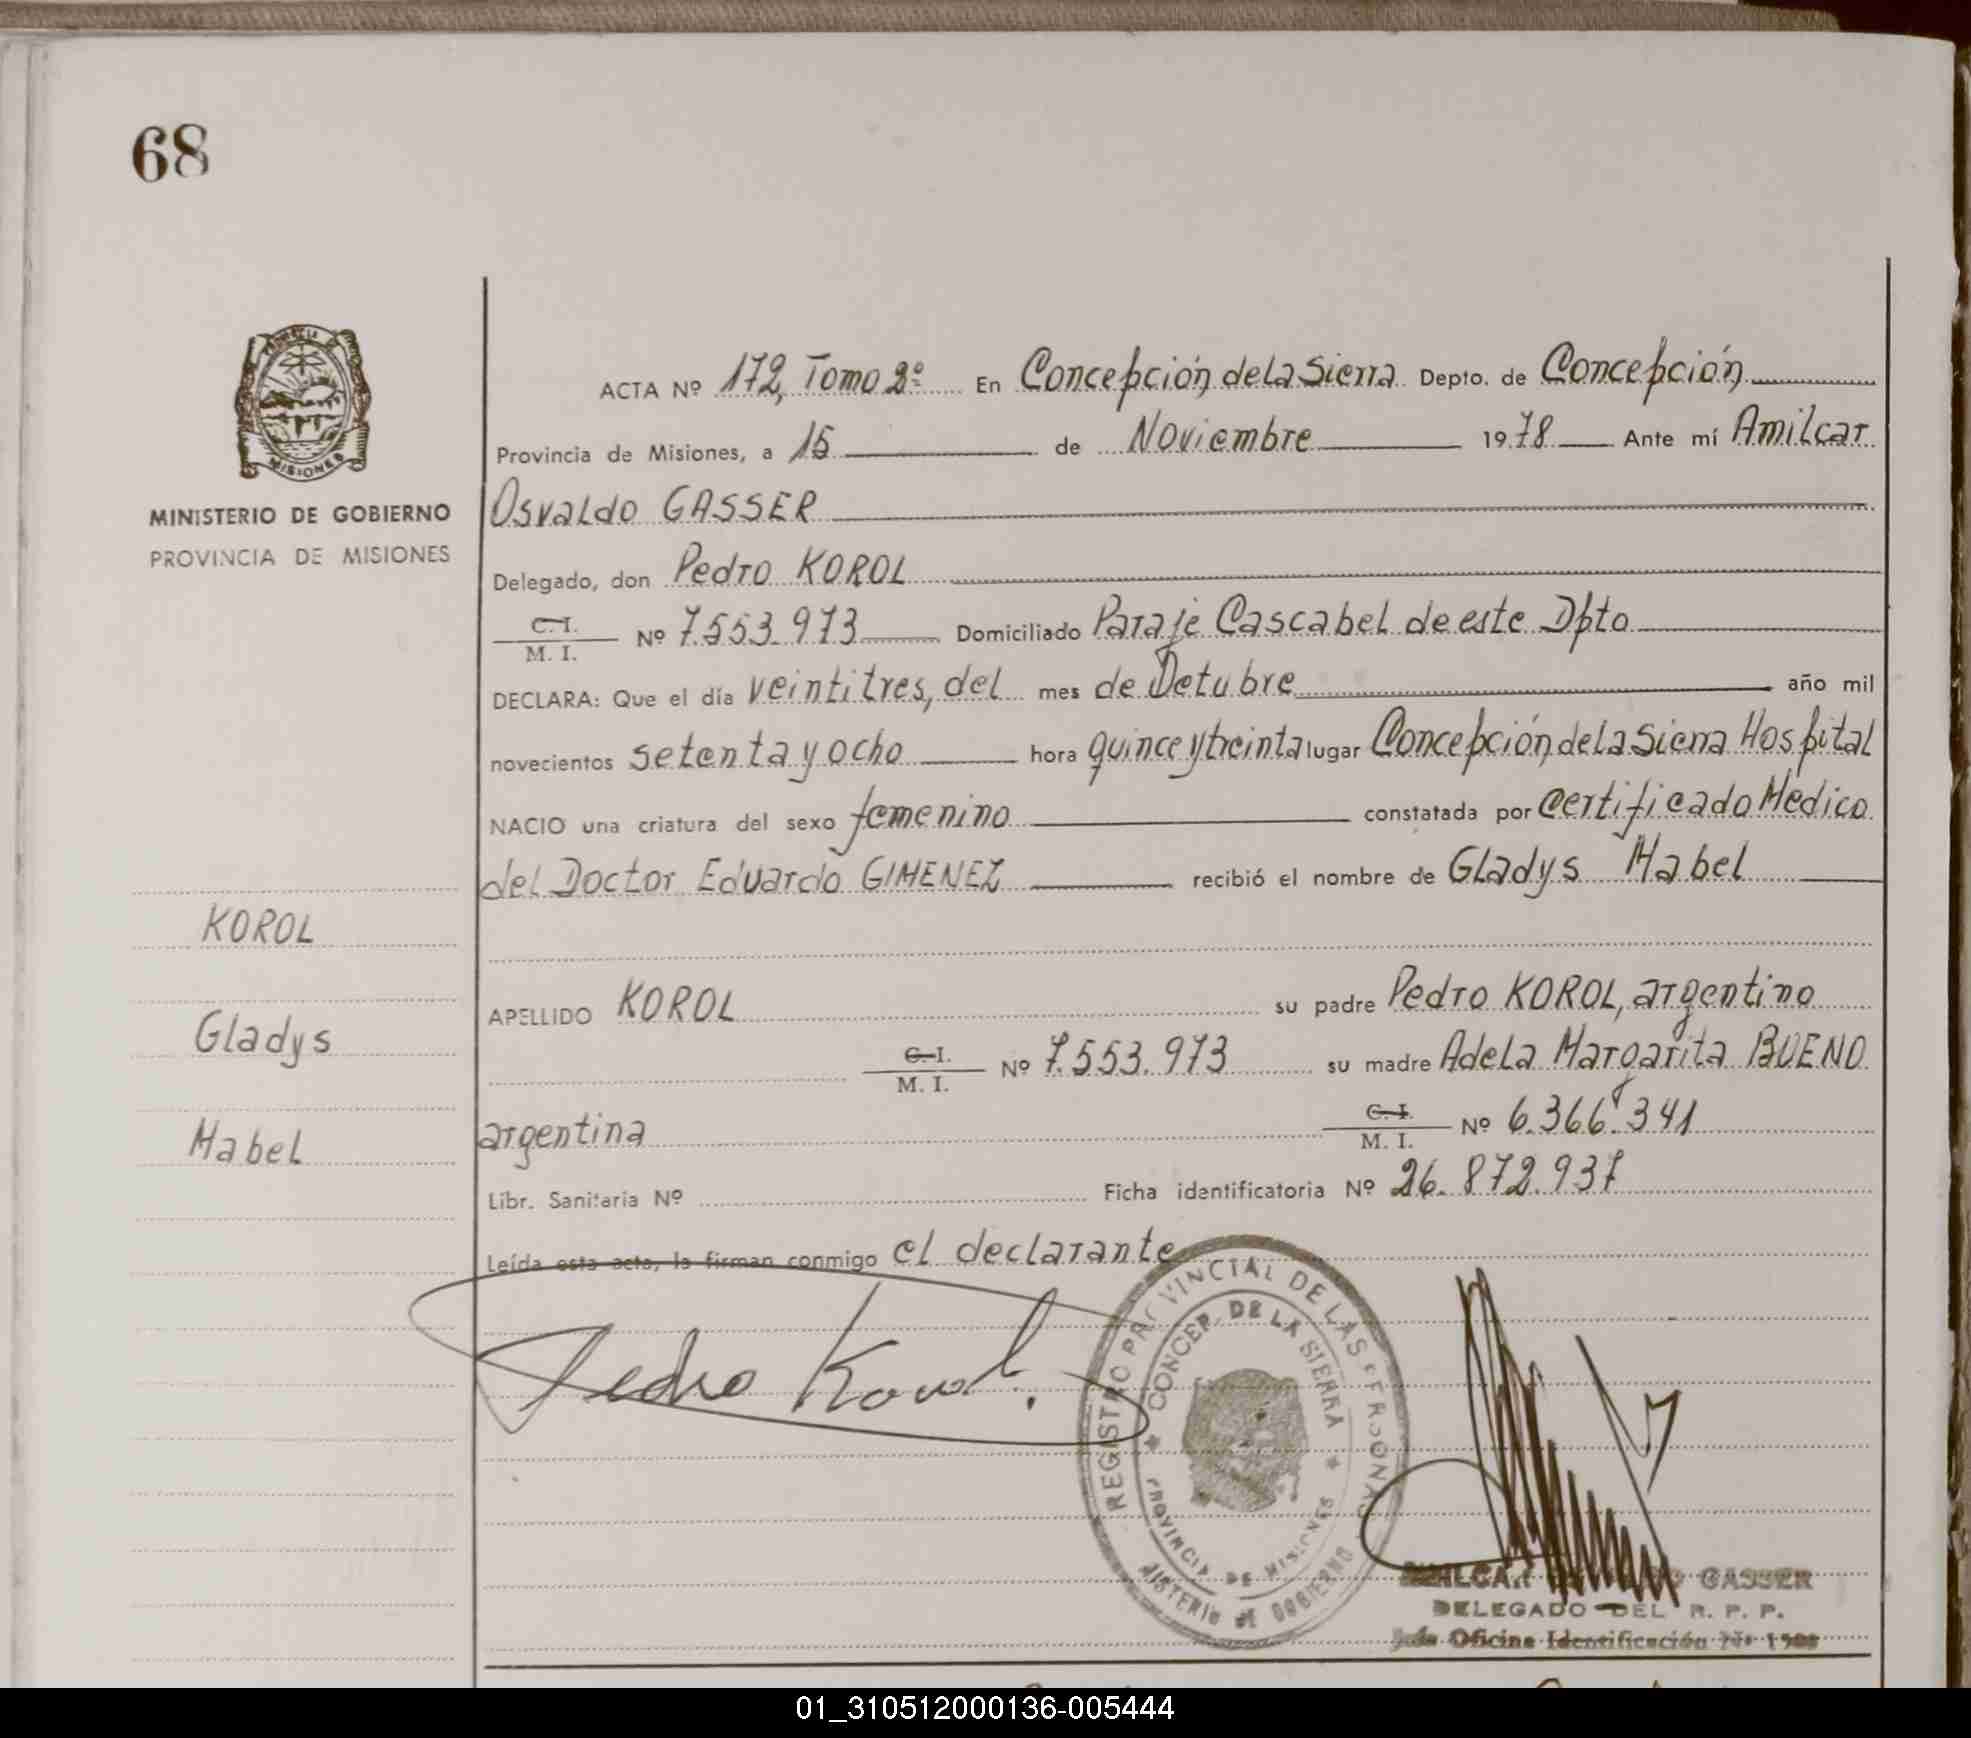 68
MISIONES
MINISTERIO DE GOBIERNO
PROVINCIA DE MISIONES
KOROL
Gladys
Mabel
ACTA Nº 172, Tomo 2º En Concepción de la Sierra Depto. de Concepción
Provincia de Misiones, a 15 de Noviembre 1978 Ante mí Amilcar
Osvaldo GASSER
Delegado, don Pedro KOROL
C. I.
M. I. Nº 7.553.973 Domiciliado Paraje Cascabel de este Dpto
DECLARA: Que el día veintitres, del mes de Octubre año mil
novecientos setenta y ocho hora quince y treinta lugar Concepción de la Sierra Hospital
NACIO una criatura del sexo femenino constatada por Certificado Medico
del Doctor Eduardo GIMENEZ recibió el nombre de Gladys Mabel
APELLIDO KOROL su padre Pedro KOROL, argentino
C. I.
M. I. Nº 7.553.973 su madre Adela Margarita BUENO
argentina C. I.
M. I. Nº 6.366.341
Libr. Sanitaria Nº Ficha identificatoria Nº 26.872.937
Leída esta acta, la firman conmigo el declarante
Pedro Korol.
REGISTRO PROVINCIAL DE LAS PERSONAS
CONCEP. DE LA SIERRA
PROVINCIA DE MISIONES
MINISTERIO DE GOBIERNO
GASSER
DELEGADO DEL R. P. P.
Oficina Identificación
01_310512000136-005444